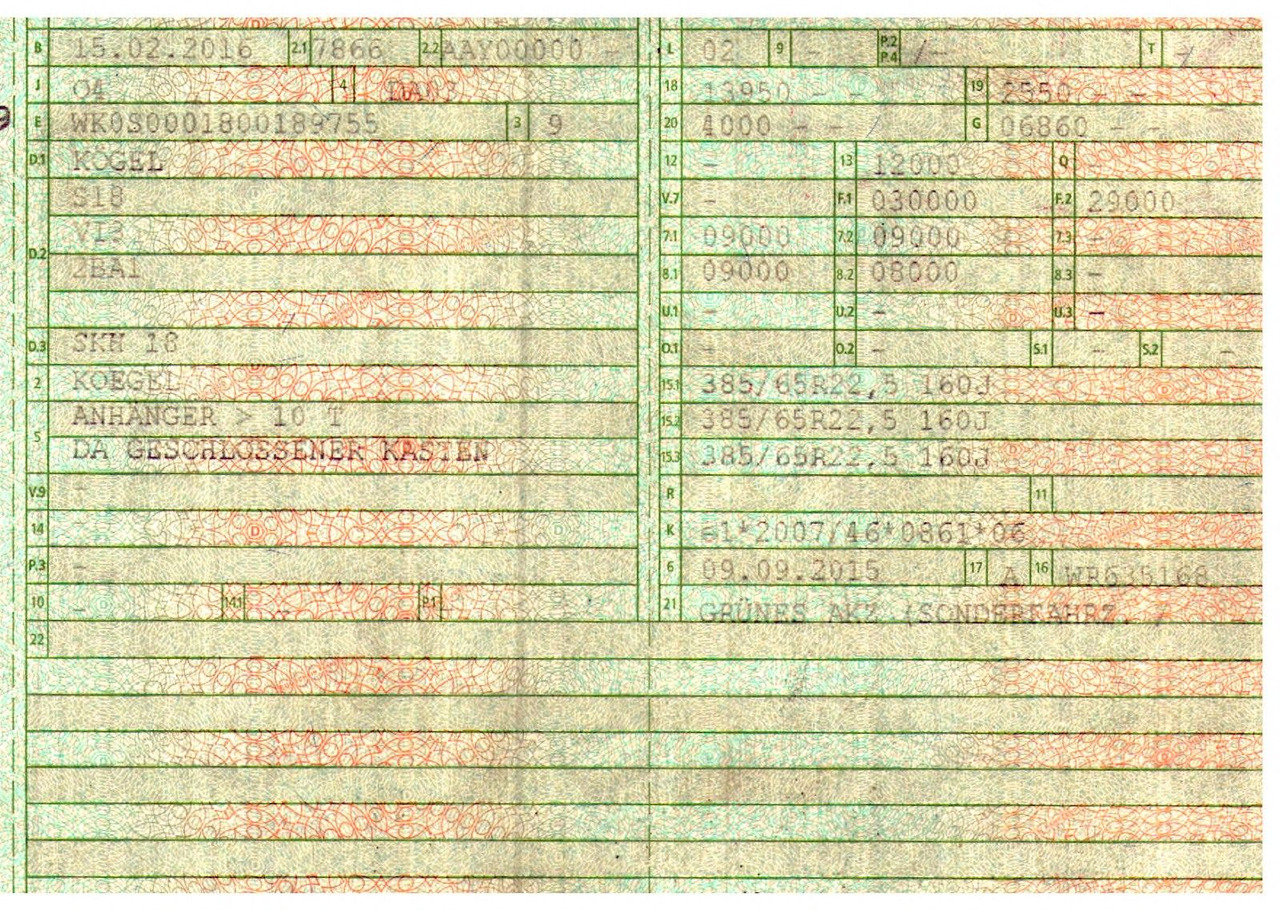 B 15.02.2016 2.1 7866 2.2 AAY00000 -
J O4 4
E WK0S0001800189755 3 9
D.1 KÖGEL
S18
D.2
2BA1
D.3 SKH 18
2 KOEGEL
ANHÄNGER > 10 T
5
DA GESCHLOSSENER KASTEN
V.9 -
14 -
P.3 -
10 - 14.1 - P.1 -
22
L 02 9 - P.2 P.4 /- T -
18 13950 - - 19 2550 - -
20 4000 - - G 06860 - -
12 - 13 12000 Q
V.7 - F.1 030000 F.2 29000
7.1 09000 7.2 09000 7.3 -
8.1 09000 8.2 08000 8.3 -
U.1 - U.2 - U.3 -
O.1 - O.2 - S.1 - S.2 -
15.1 385/65R22,5 160J
15.2 385/65R22,5 160J
15.3 385/65R22,5 160J
R 11
K e1*2007/46*0861*06
6 09.09.2015 17 A 16 WR635168
21 GRÜNES AKZ (SONDERFAHRZ. /